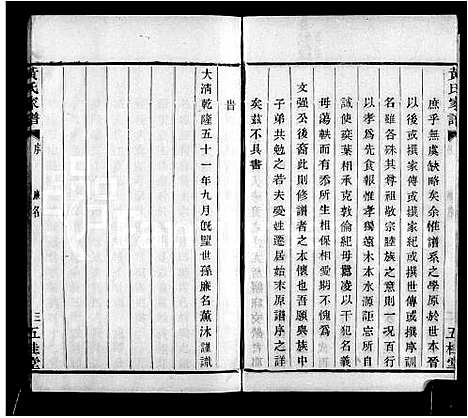 黃氏家譜
五桂堂
庶乎無虞缺略矣余惟譜系之學原於世本晉
以後或撰家傳或撰家紀或撰世傳或撰序
名雖各殊其尊祖敬宗睦族之意則一况百行
以孝爲先食報惟孝獨遠木本水源詎忘所自
誠使奕葉相承克敦倫紀毋囂凌以干犯名義
毋蕩軼而有忝所生相保相愛期不愧爲
文强公後裔此則修譜者之本懷也尚願與族中
子弟共勉之若夫受姓遷居始末原譜序之詳
矣茲不具書
旹
大清乾隆五十一年九月旣望世孫廉名薰沐謹識
黃氏家譜
序
廉名
三
五桂堂